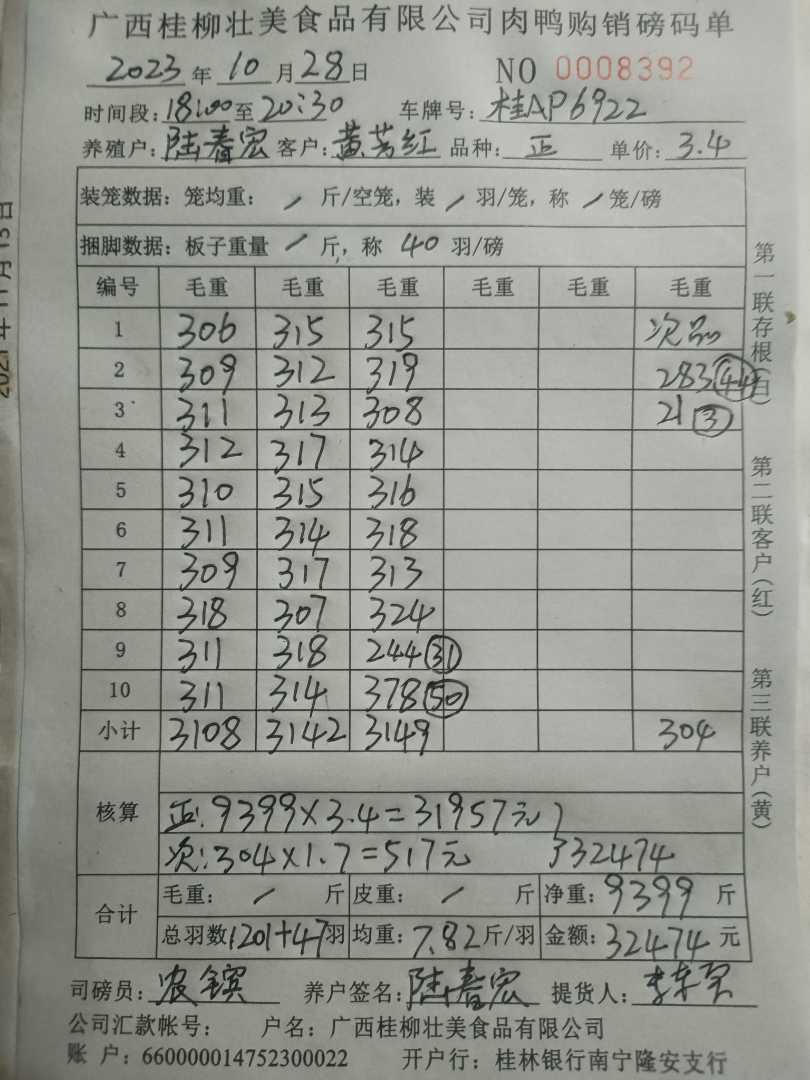 广西桂柳壮美食品有限公司肉鸭购销磅码单
2023年10月28日 NO 0008392
时间段:18:00至20:30 车牌号:桂AP6922
养殖户:陆春宏 客户:黄芳红 品种:正 单价:3.4
装笼数据:笼均重: / 斤/空笼,装 / 羽/笼,称 / 笼/磅
捆脚数据:板子重量 / 斤,称 40 羽/磅
编号 毛重 毛重 毛重 毛重 毛重 毛重
1 306 315 315 次品
2 309 312 319 283 44
3 311 313 308 21 3
4 312 317 314
5 310 315 316
6 311 314 318
7 309 317 313
8 318 307 324
9 311 318 244 31
10 311 314 378 50
小计 3108 3142 3149 304
核算
正:9399×3.4=31957元
次:304×1.7=517元 32474
合计
毛重: / 斤 皮重: / 斤 净重:9399 斤
总羽数1201+47羽 均重:7.82斤/羽 金额:32474元
司磅员:农 养户签名:陆春宏 提货人:李
公司汇款帐号: 户名:广西桂柳壮美食品有限公司
账 户:660000014752300022 开户行:桂林银行南宁隆安支行
第一联存根(白)
第二联客户(红)
第三联养户(黄)